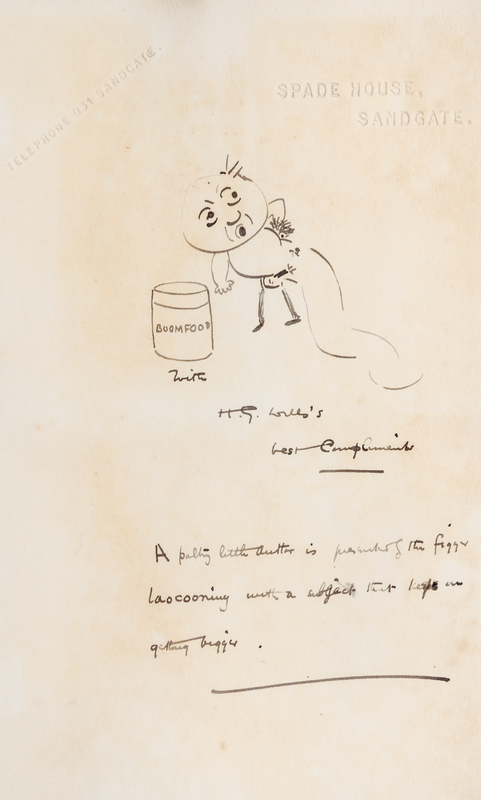 TELEPHONE 031 SANDGATE.
SPADE HOUSE,
SANDGATE.
BOOMFOOD
With
H.G. Wells's
best Compliments
A paltry little Author is presented by the figger
laocooning with a subject that keeps on
getting bigger.